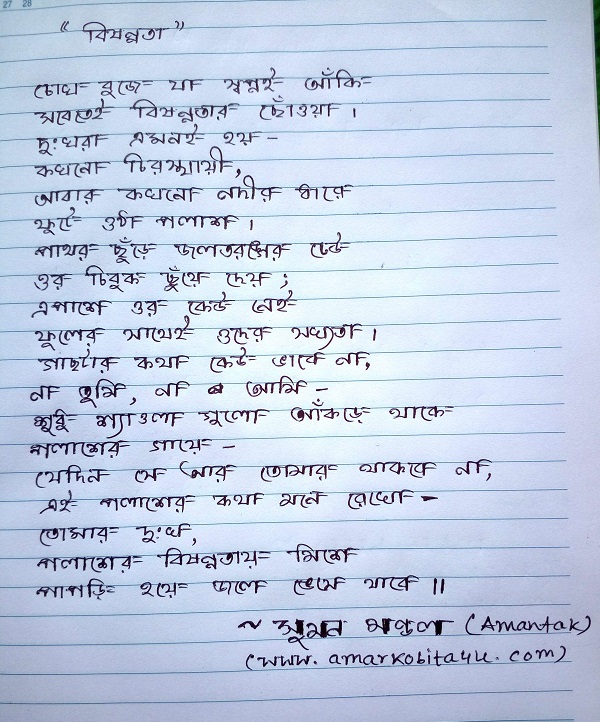 27 28
" বিষন্নতা "
চোখ বুজে যা স্বপ্নই আঁকি
সবেতেই বিষন্নতার ছোঁওয়া ।
দুঃখরা এমনই হয় -
কখনো চিরস্থায়ী,
আবার কখনো নদীর ধারে
ফুটে ওঠা পলাশ ।
পাথর ছুঁড়ে জলতরঙ্গের ঢেউ
ওর চিবুক ছুঁয়ে দেয় ;
এপাশে ওর কেউ নেই
ফুলের সাথেই ওদের সখ্যতা ।
গাছটার কথা কেউ ভাবে না,
না তুমি, না আমি -
শুধু শ্যাওলা গুলো আঁকড়ে থাকে
পলাশের গায়ে -
যেদিন সে আর তোমার থাকবে না,
এই পলাশের কথা মনে রেখো -
তোমার দুঃখ,
পলাশের বিষন্নতায় মিশে
পাপড়ি হয়ে জলে ভেসে যাবে ॥
~ সুমন মণ্ডল (Amantak)
(www. amarkobita4u. com)